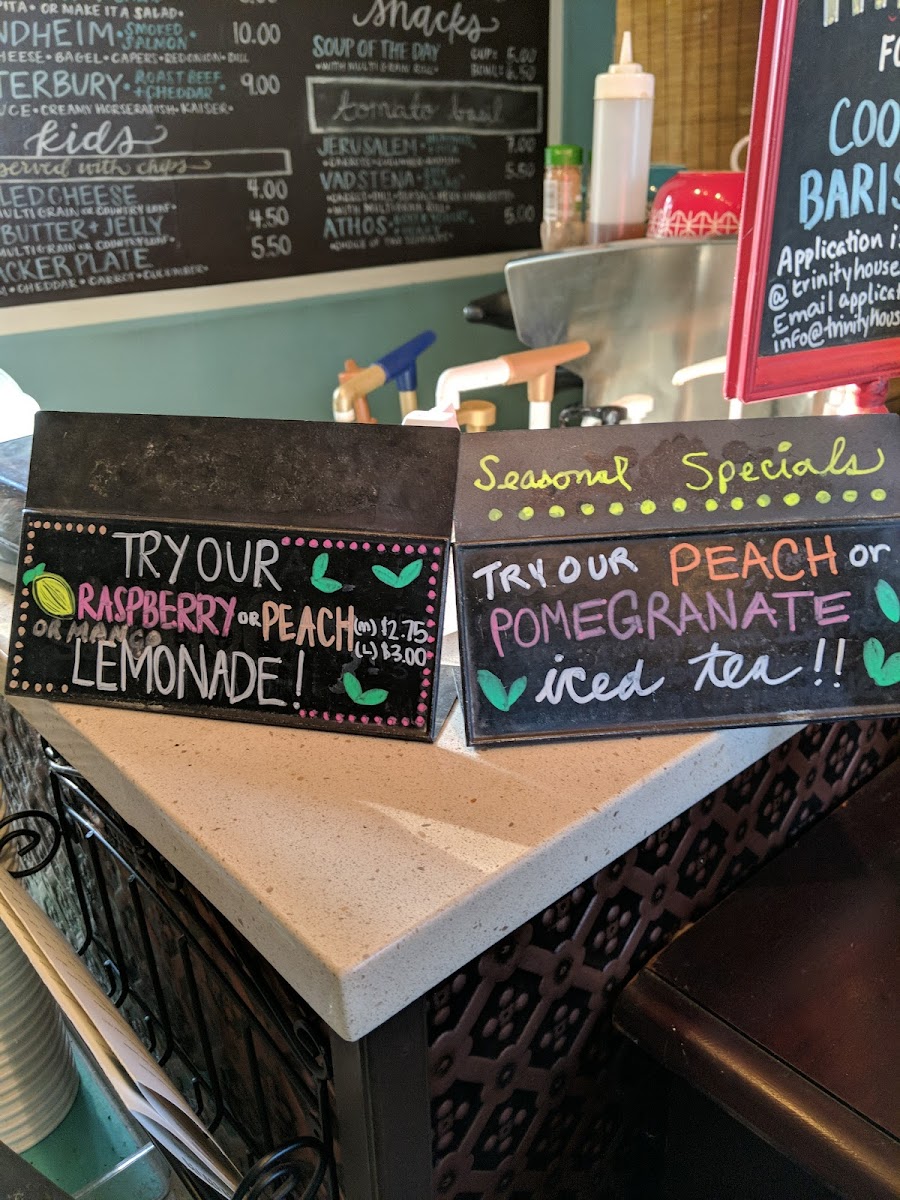 PITA • OR MAKE IT A SALAD •
NDHEIM • SMOKED SALMON 10.00
CHEESE • BAGEL • CAPERS • RED ONION • DILL
TERBURY • ROAST BEEF + CHEDDAR • 9.00
UCE • CREAMY HORSERADISH • KAISER •
kids
served with chips
LED CHEESE 4.00
MULTI GRAIN OR COUNTRY LOAF •
BUTTER + JELLY 4.50
MULTI GRAIN OR COUNTRY LOAF •
ACKER PLATE 5.50
CHEDDAR • CARROT • CUCUMBER •
snacks
SOUP OF THE DAY CUP: 5.00
• WITH MULTI GRAIN ROLL • BOWL: 6.50
tomato basil
JERUSALEM • 7.00
VADSTENA • 5.50
• WITH MULTI GRAIN ROLL •
ATHOS • 5.00
FO
COO
BARIS
Application i
@trinityhouse
Email applicat
info@trinityhous
TRY OUR
RASPBERRY OR PEACH (M) $2.75
OR MANGO (L) $3.00
LEMONADE!
Seasonal Specials
TRY OUR PEACH or
POMEGRANATE
iced tea!!